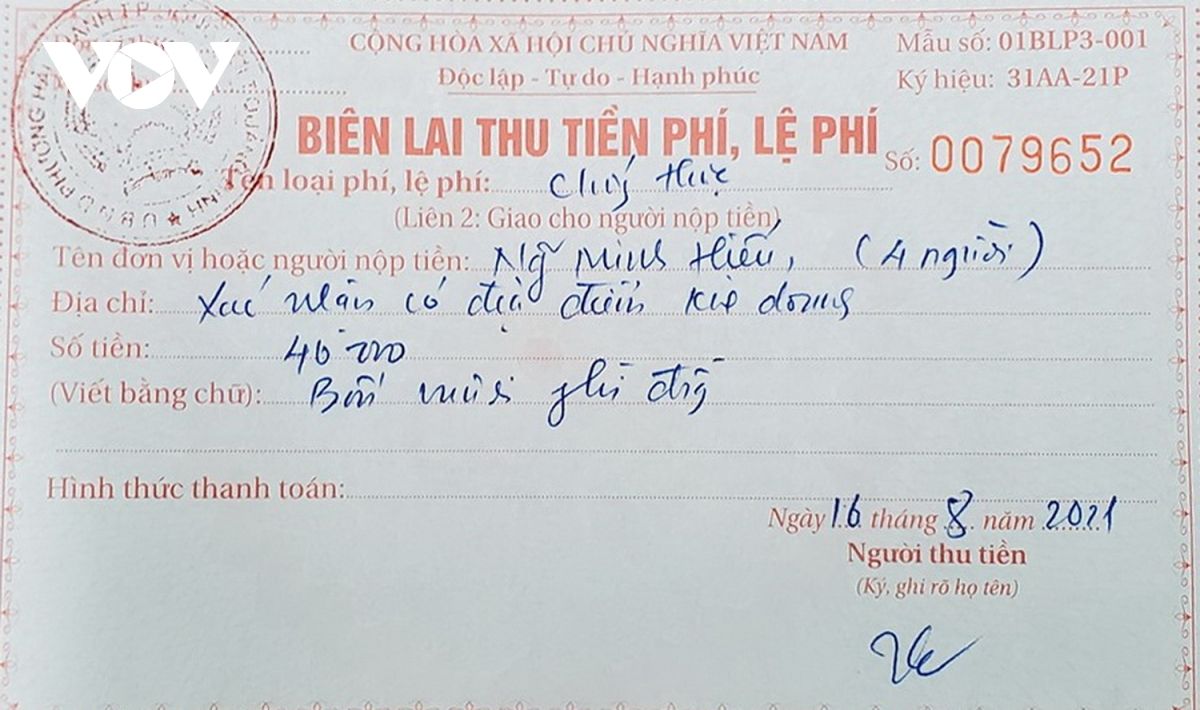 VOV
CỘNG HÒA XÃ HỘI CHỦ NGHĨA VIỆT NAM
Mẫu số: 01BLP3-001
Độc lập - Tự do - Hạnh phúc
Ký hiệu: 31AA-21P
BIÊN LAI THU TIỀN PHÍ, LỆ PHÍ
Số: 0079652
Tên loại phí, lệ phí: Chứng thực
(Liên 2: Giao cho người nộp tiền)
Tên đơn vị hoặc người nộp tiền: Ng Minh Hiếu, (4 người)
Địa chỉ: Xác nhận có địa điểm doanh
Số tiền: 40 000
(Viết bằng chữ): Bốn mươi đồng
Hình thức thanh toán:
Ngày 16 tháng 8 năm 2021
Người thu tiền
(Ký, ghi rõ họ tên)